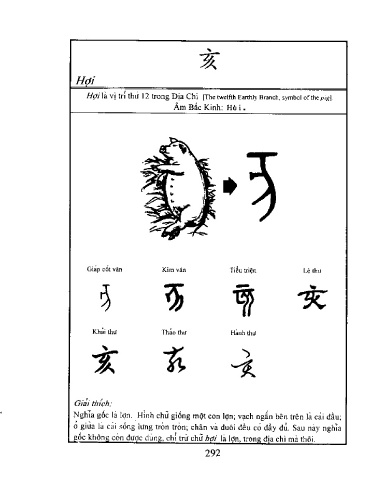 亥
Hợi
Hợi là vị trí thứ 12 trong Địa Chi (The twelfth Earthly Branch, symbol of the pig)
Âm Bắc Kinh: Hài.
Giáp cốt văn Kim văn Tiểu triện Lệ thư
亥 亥 亥 亥
Khải thư Thảo thư Hành thư
亥 亥 亥
Giải thích:
Nghĩa gốc là lợn. Hình chữ giống một con lợn; vạch ngắn bên trên là cái đầu;
ở giữa là cái sống lưng tròn tròn; chân và đuôi đều có đầy đủ. Sau này nghĩa
gốc không còn được dùng, chỉ trừ chữ hợi là lợn, trong địa chi mà thôi.
292